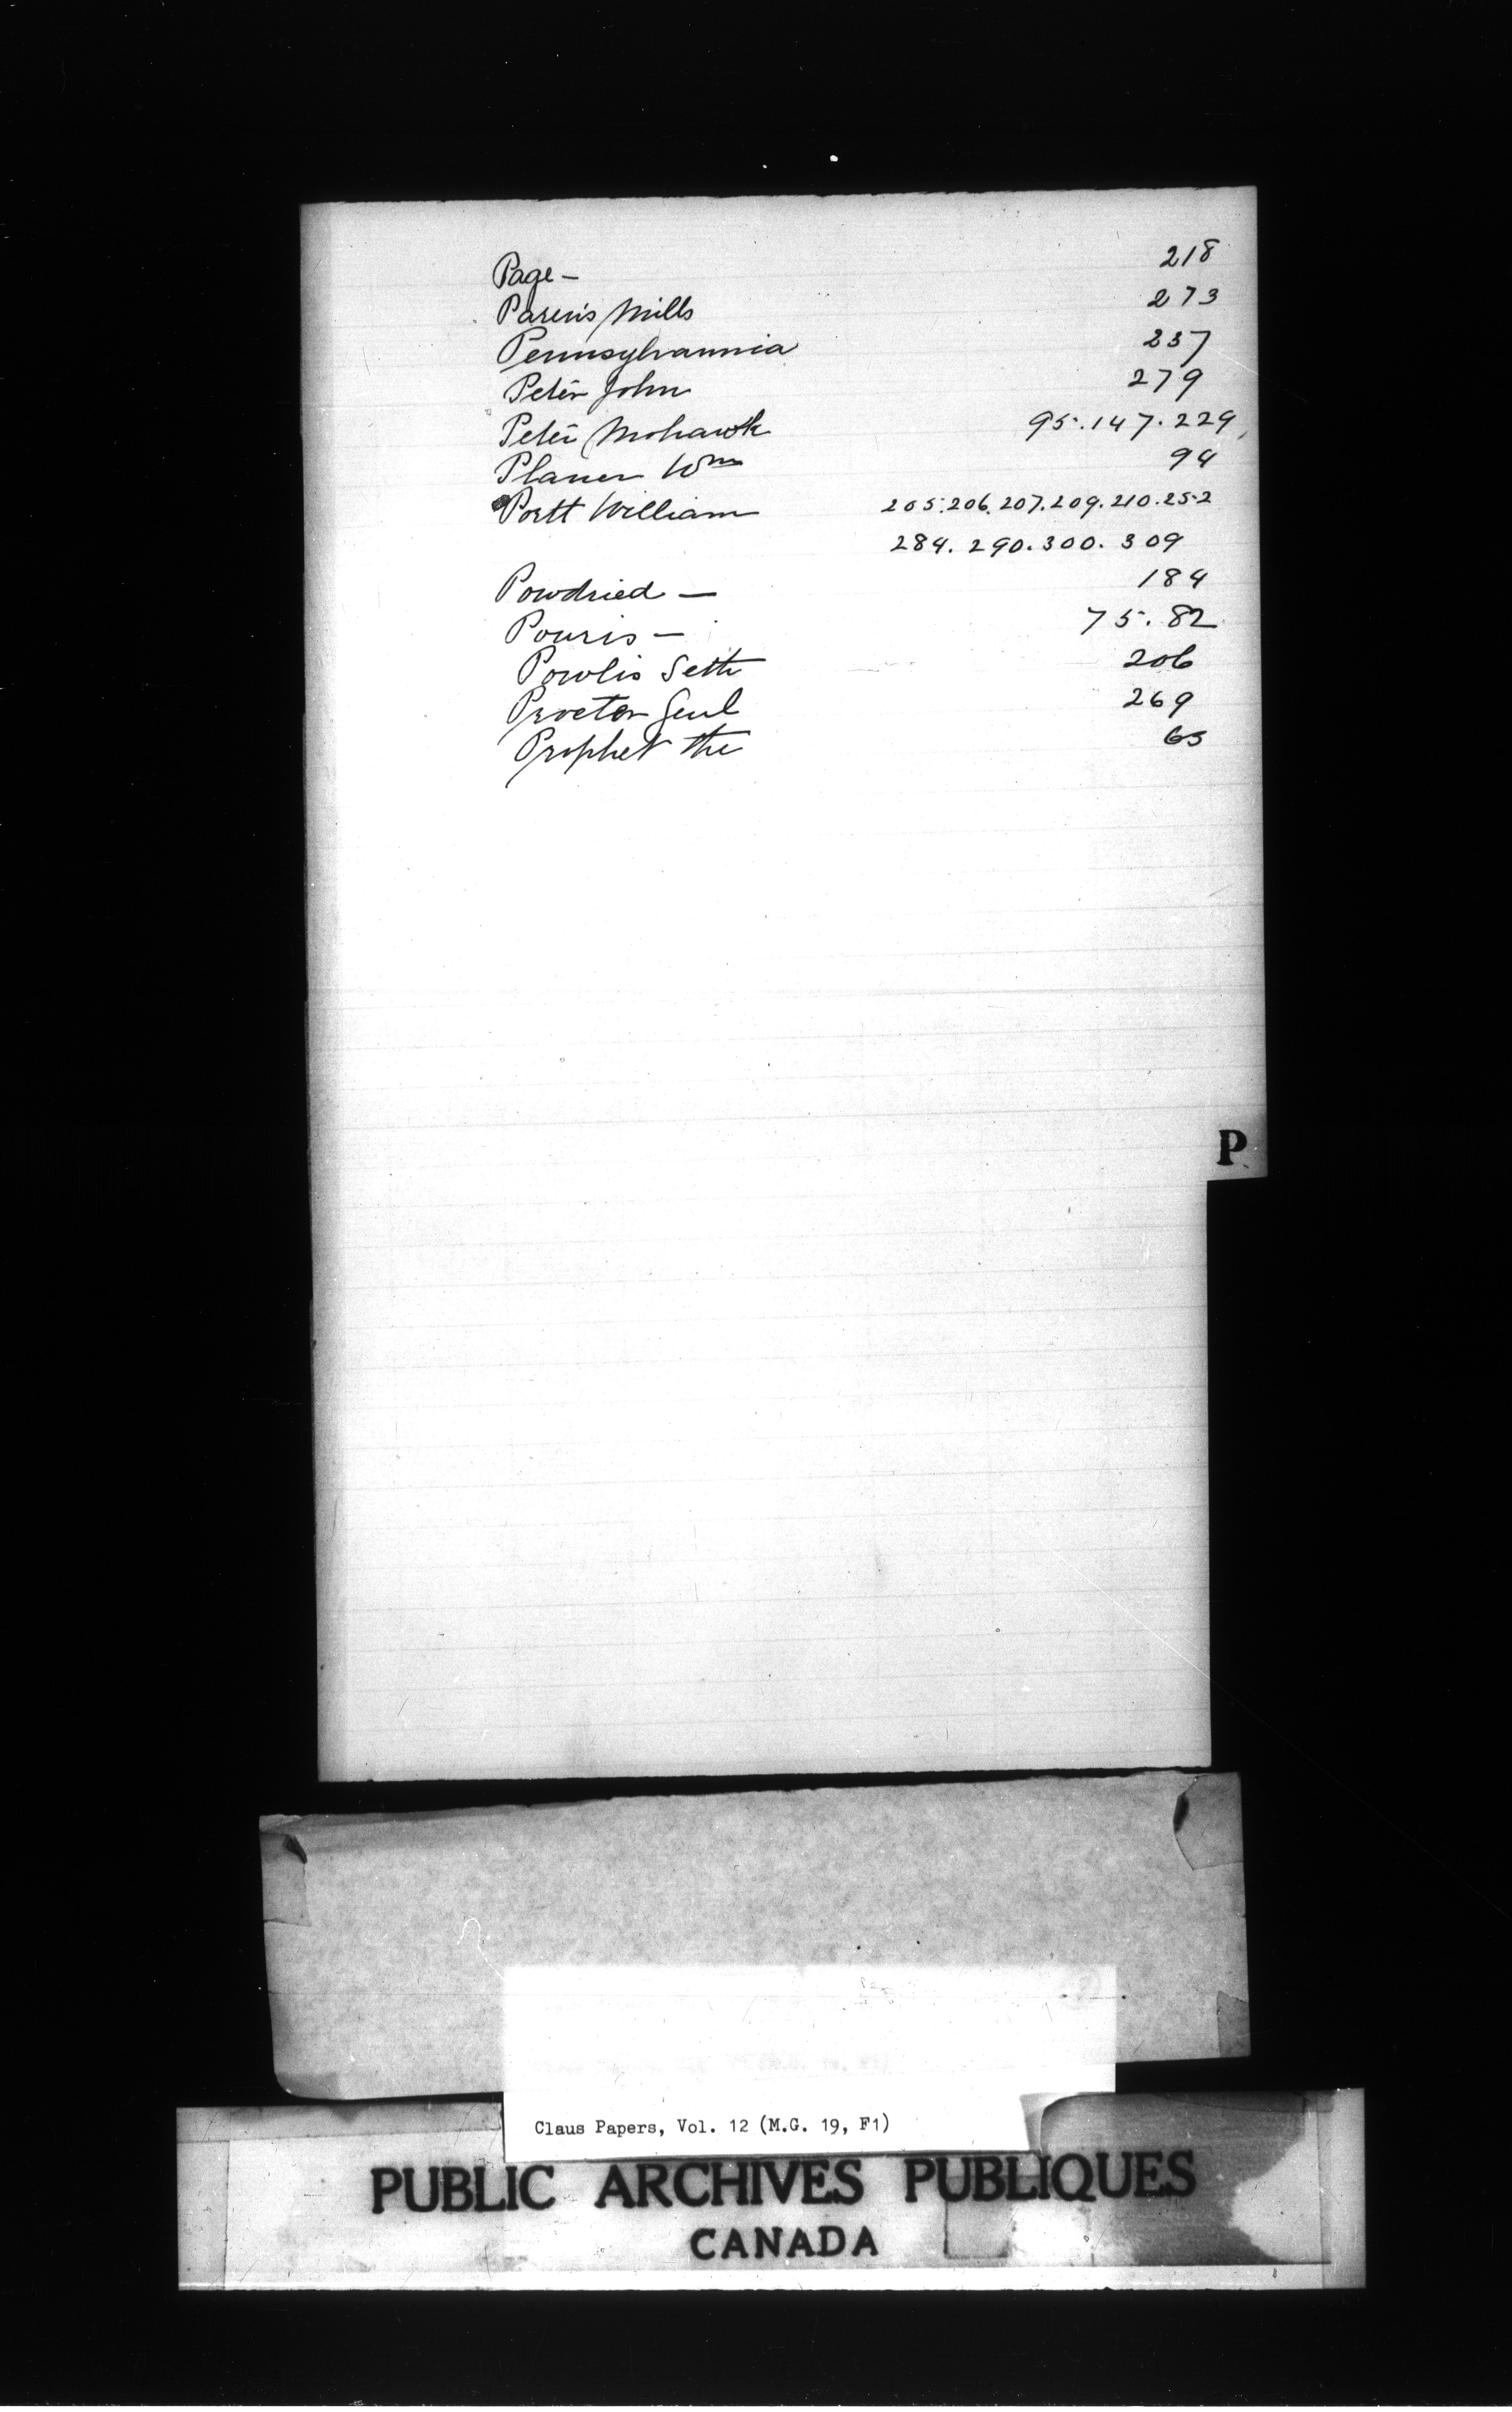 Page — 218
Paren's Mills 273
Pennsylvannia 237
Peter John 279
Peter Mohawk 95.147.229
Planer Wm 94
Portt William 205.206.207.209.210.252
284.290.300.309
Powdried — 184
Pouris — 75.82
Powlis Seth 206
Procter Genl 269
Prophet the 63
P
Claus Papers, Vol. 12 (M.G. 19, F1)
PUBLIC ARCHIVES PUBLIQUES
CANADA